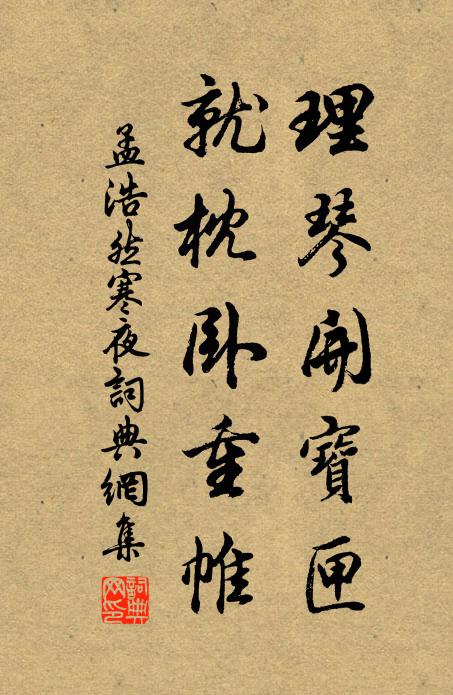 理琴開寶匣
就枕臥重帷
孟浩然寒夜詞典網集
詞典
网印